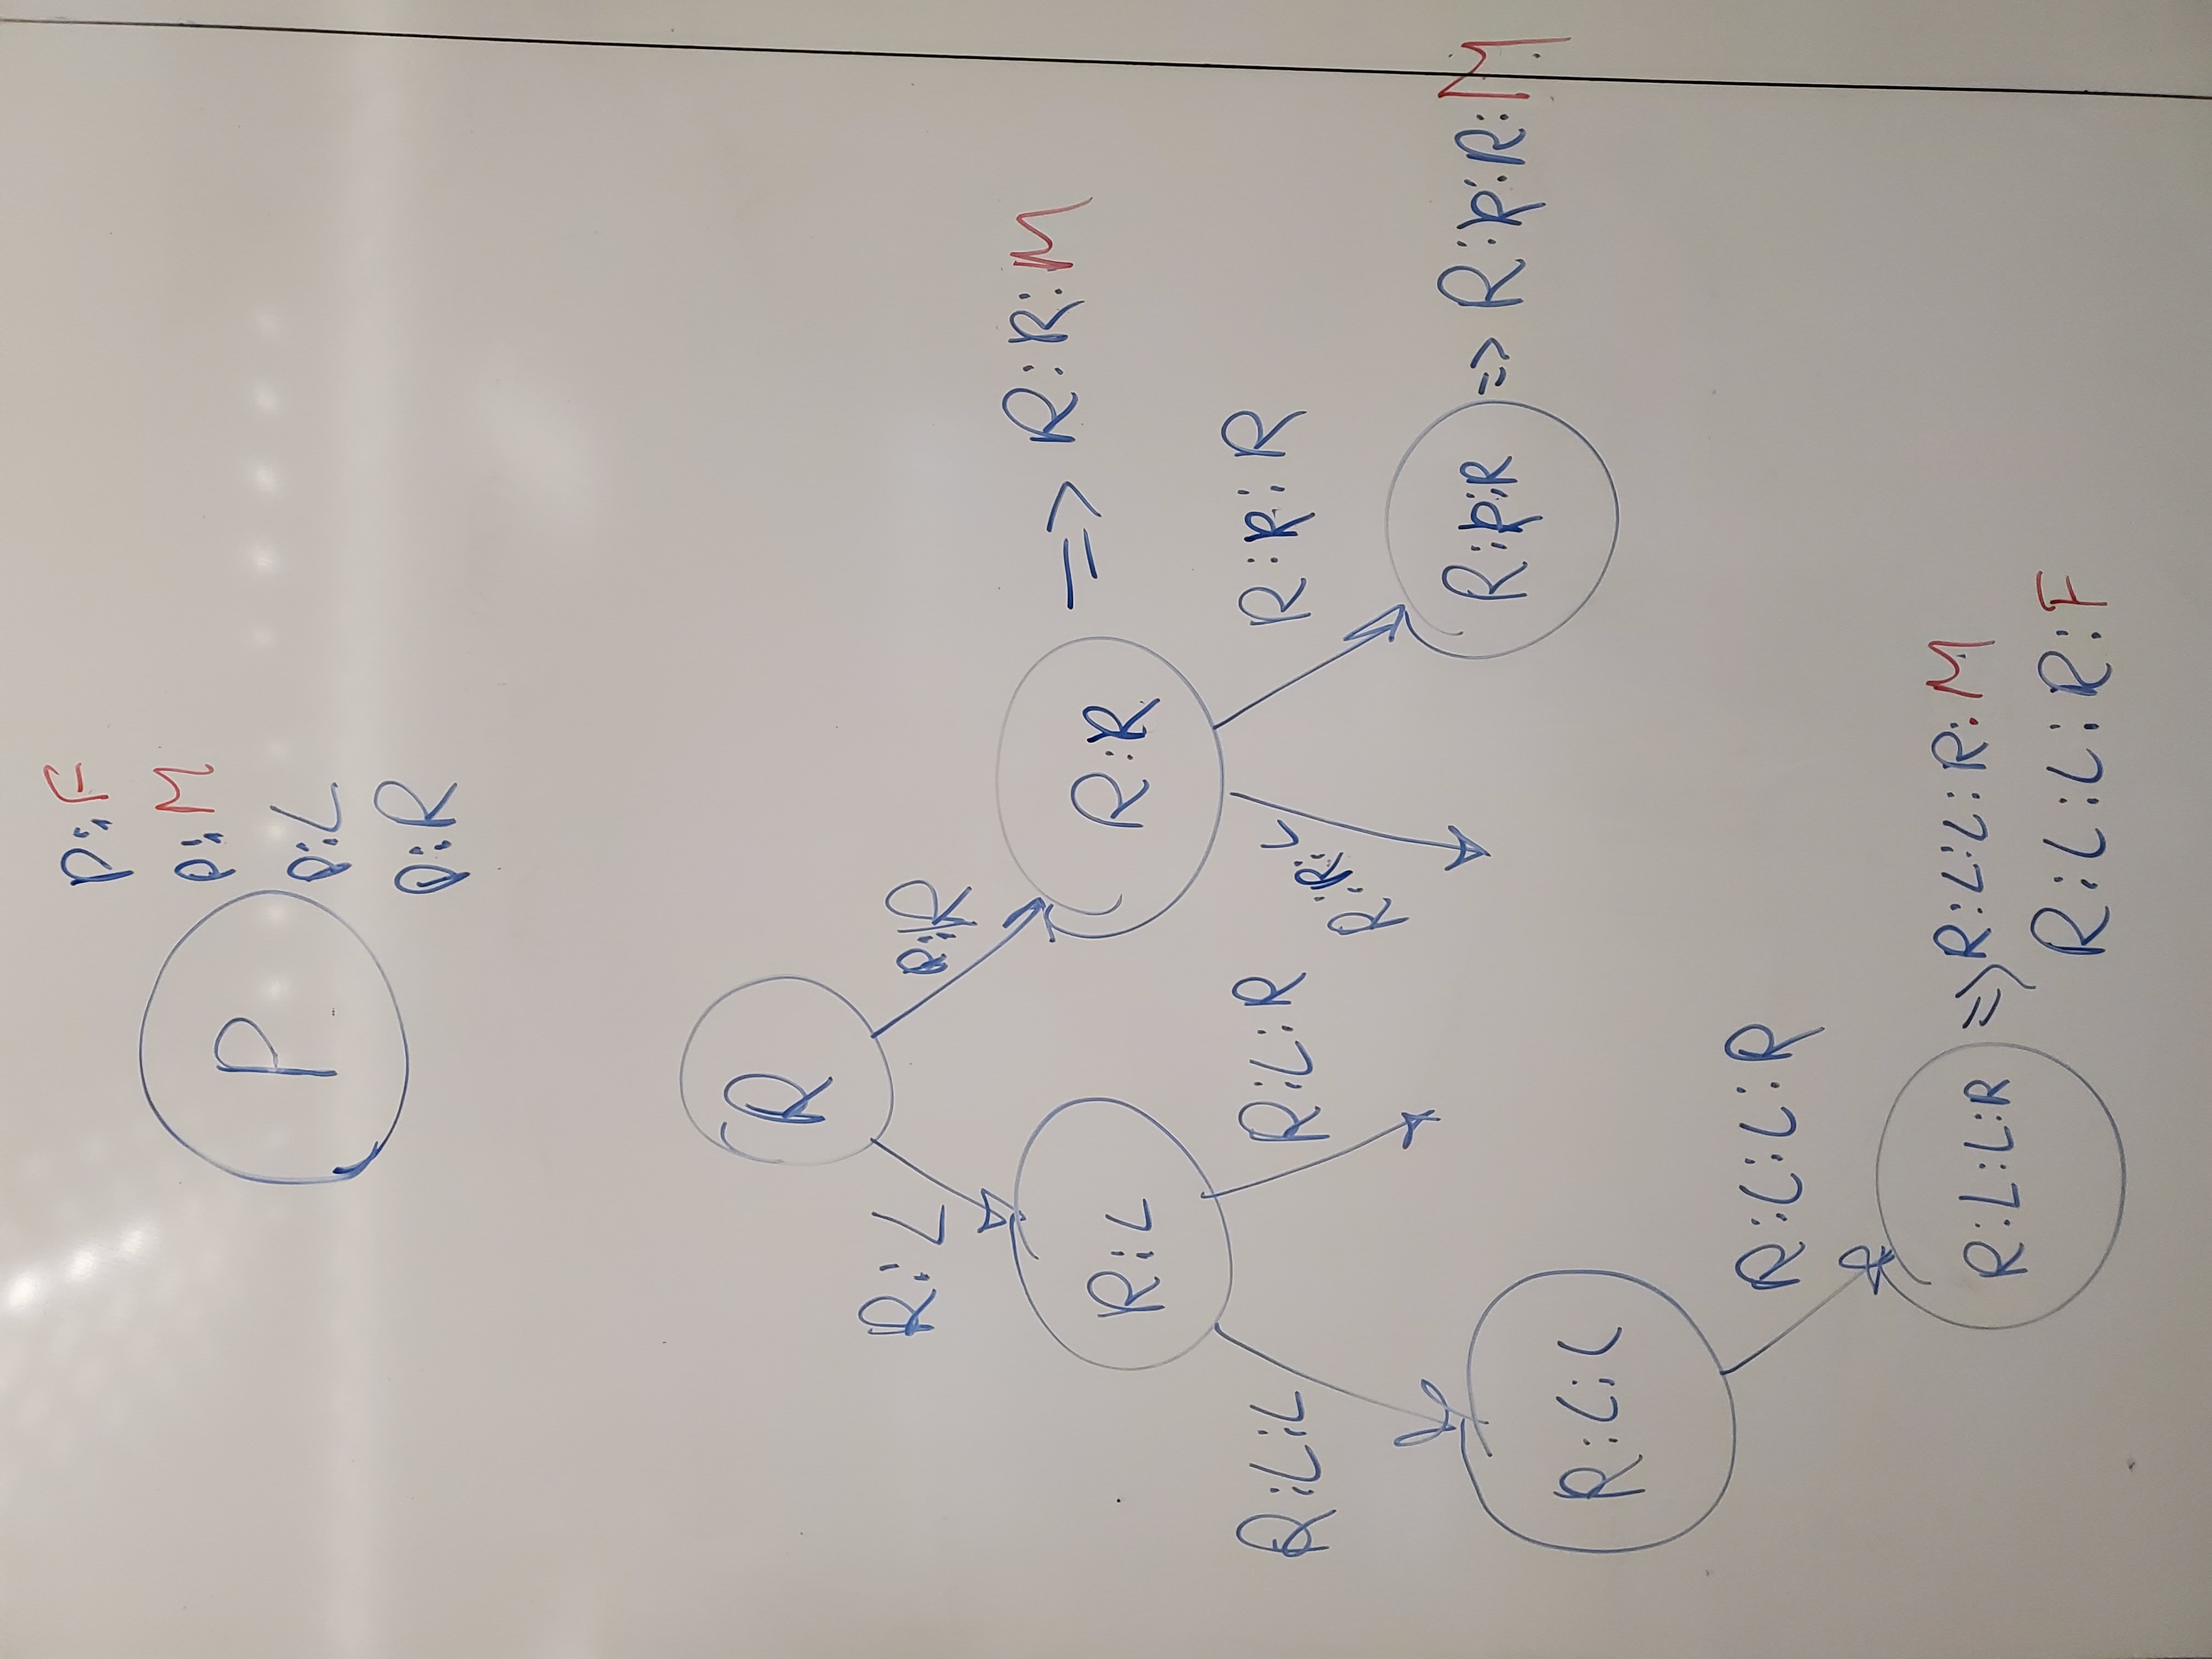 P:F
P:M
P
P:L
P:R
R
R:L
R:R
R:R:M
R:L
R:R
R:L:L
R:L:R
R:R:L
R:R:R
R:R:R
R:R:R:M
R:L:L
R:L:L:R
R:L:L:R
R:L:L:R:M
R:L:L:R:F